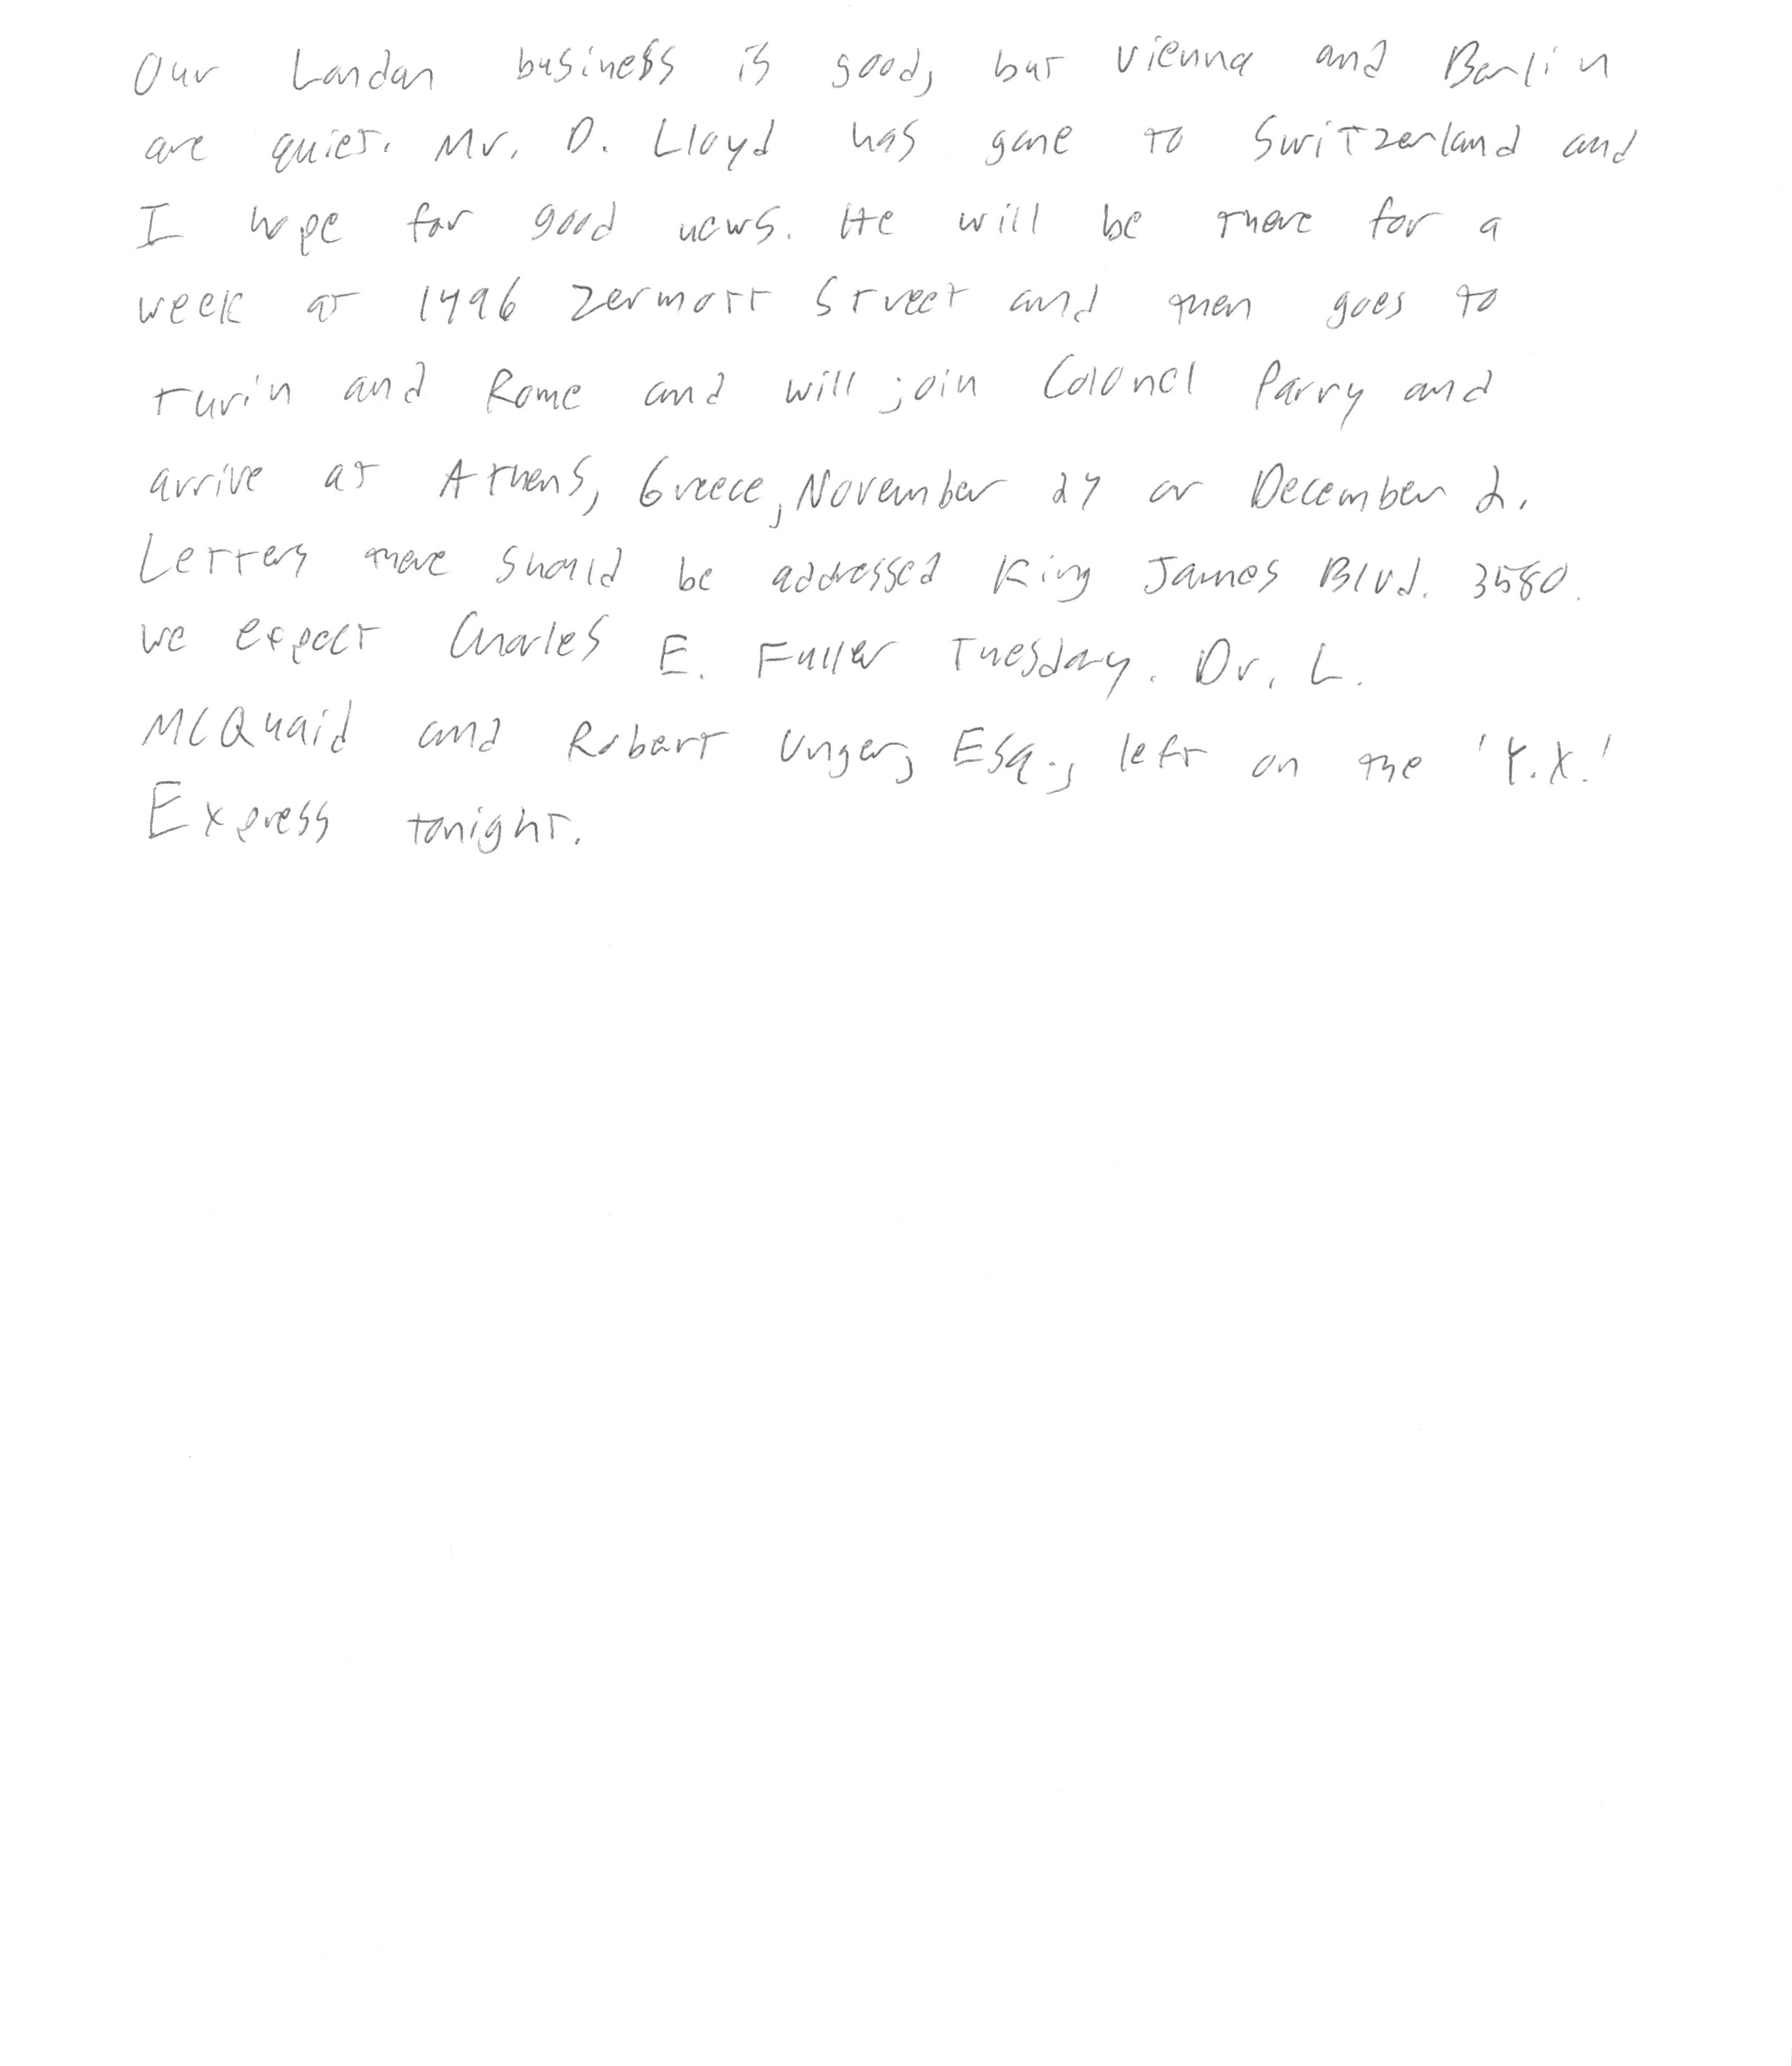 Our London business is good, but Vienna and Berlin
are quiet. Mr. D. Lloyd has gone to Switzerland and
I hope for good news. He will be there for a
week at 1496 Zermott Street and then goes to
Turin and Rome and will join Colonel Parry and
arrive at Athens, Greece, November 27 or December 2.
Letters there should be addressed King James Blvd. 3580.
We expect Charles E. Fuller Tuesday. Dr. L.
McQuaid and Robert Unger, Esq., left on the 'Y.X.'
Express tonight.